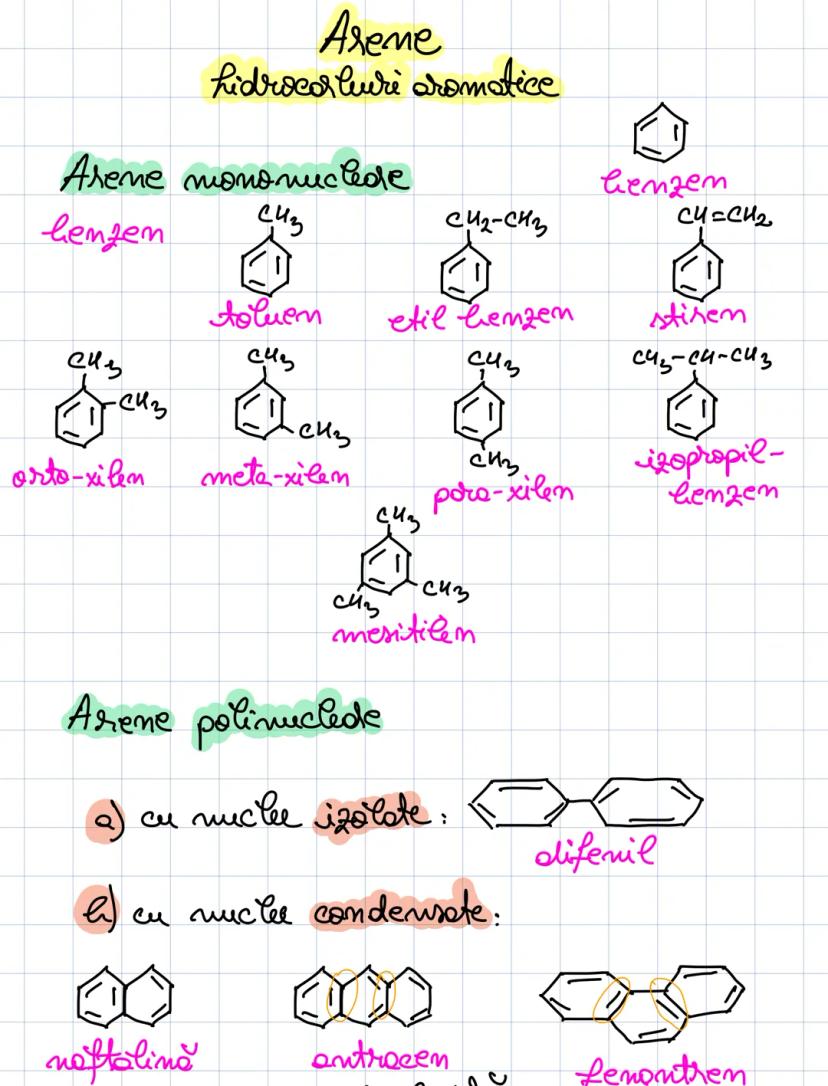 Arene
hidrocarburi aromatice
benzen
Arene mononucleare
benzen
CH3
toluen
CH2-CH3
etil benzen
CH=CH2
stiren
CH3
CH3
orto-xilen
CH3
CH3
meta-xilen
CH3
CH3
para-xilen
CH3-CH-CH3
izopropil-
benzen
CH3
CH3
CH3
mesitilen
Arene polinucleare
a) cu nuclee izolate:
difenil
b) cu nuclee condensate:
naftalină
antracen
fenantren